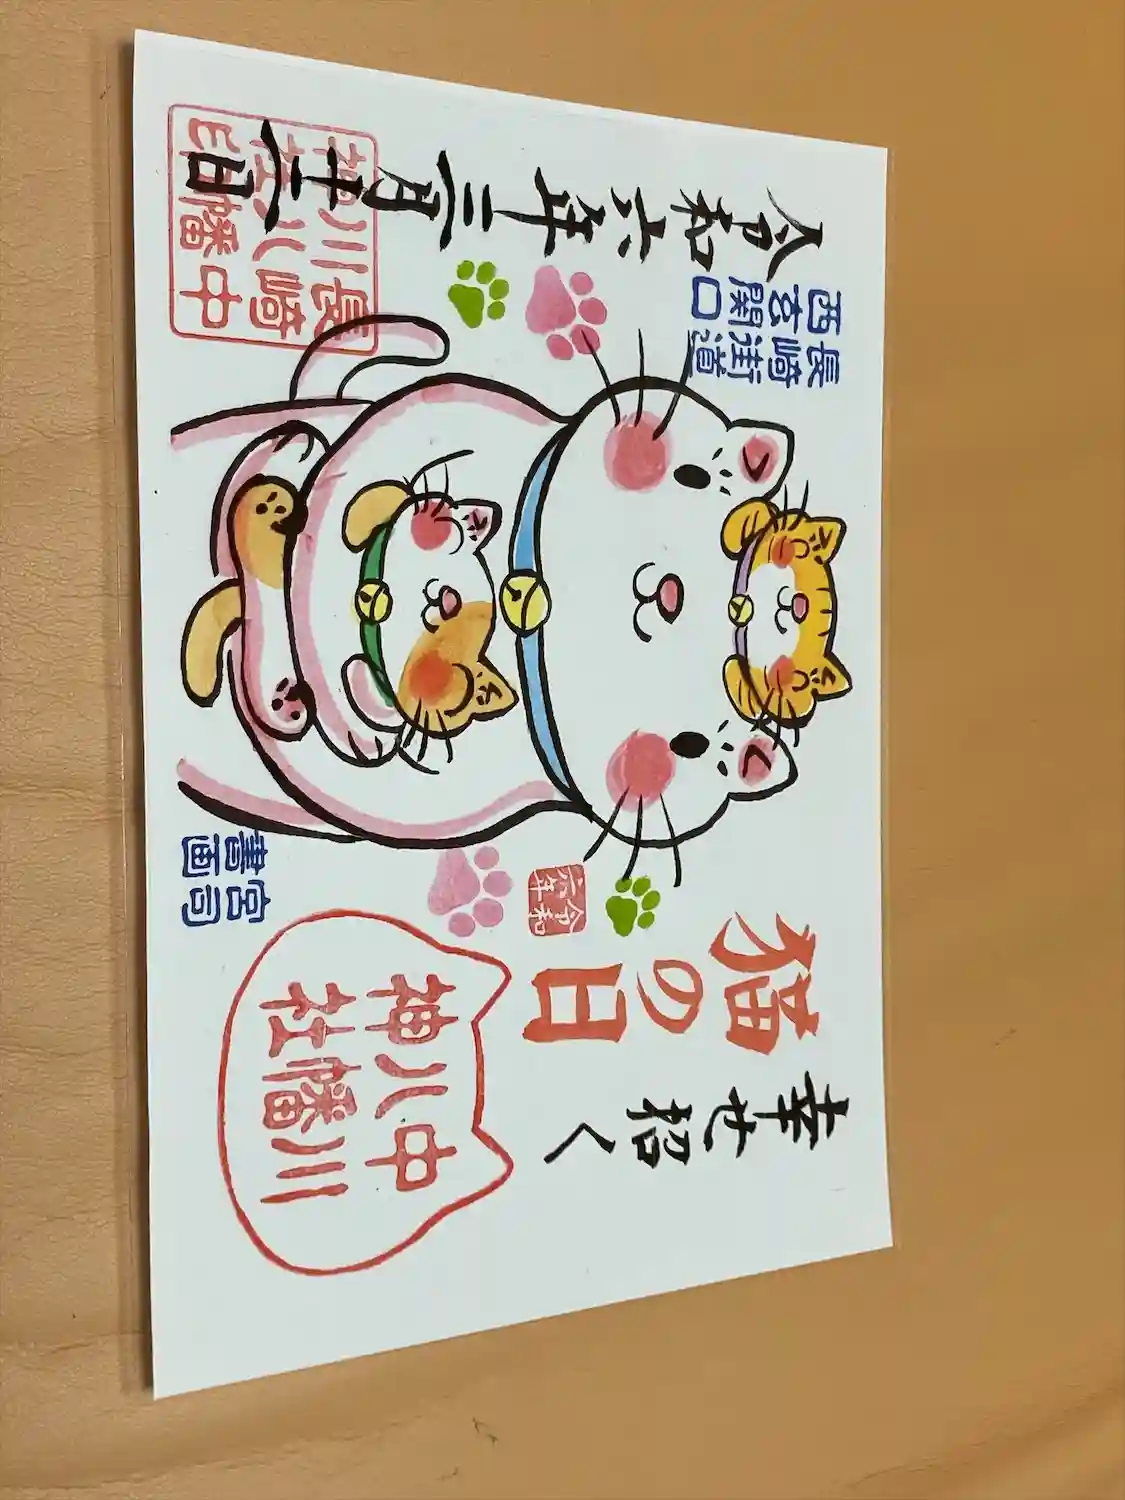 幸せ招く
猫の日
中川
八幡
神社
令和
六年
宮司
書画
長崎街道
西玄関口
令和六年二月廿二日
長崎中
川八幡
神社印